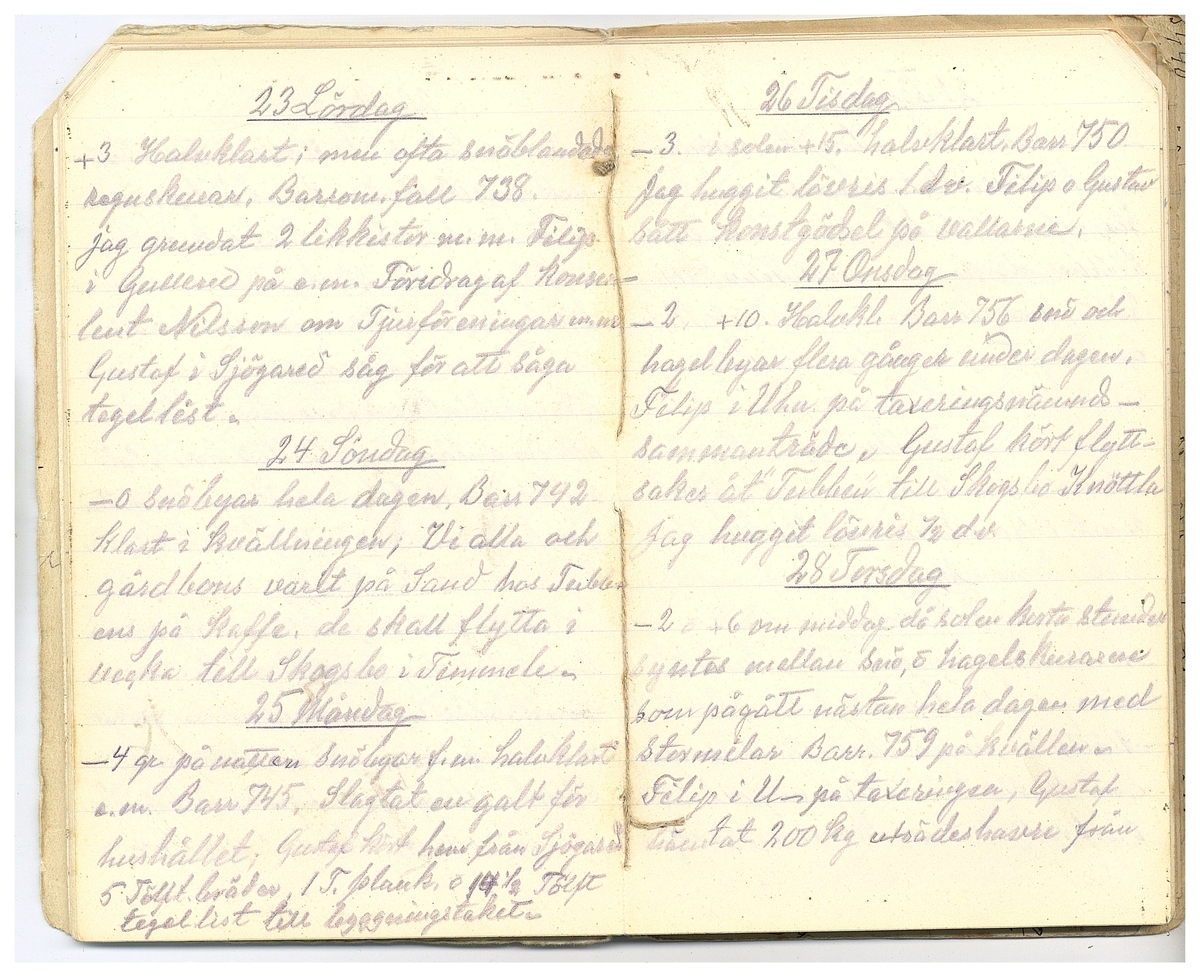 23 Lördag
+3 Halvklart; men ofta snöblandade
regnskurar, Barom. fall 738.
jag grundat 2 likkistor m.m. Filip
i Gullered på e.m. Föridrag af konsu-
lent Nilsson om Tjurföreningar m.m
Gustaf i Sjögared såg för att såga
tegellest.
24 Söndag
-0 snöbyar hela dagen. Barr 742
klart i kvällningen; Vi alla och
gårdbons varit på Sand hos Tubb-
ens på kaffe. de skall flytta i
vecka till Skogsbo i Timmele.
25 Måndag
-4 gr på natten snöbyar f.m. halvklart
e.m. Barr 745. Slagtat en galt för
hushållet; Gustaf kört hem från Sjögared
5 Tolft bräder, 1 T. plank. o 14 1/2 Tolft
tegellist till byggningstaket.
26 Tisdag
-3. i solen +15. halvklart. Barr 750
Jag huggit lövris 1 dv. Filip o Gustav
sått konstgödsel på vallarne.
27 Onsdag
-2, +10. Halvkl. Barr 756 snö och
hagelbyar flera gånger under dagen.
Filip i Uhn på taxeringsnämnds-
sammanträde. Gustaf kört flytt-
saker åt "Tubben" till Skogsbo Knöttla
Jag huggit lövris 1/2 dv.
28 Torsdag
-2 o +6 om middag då solen korta stunder
syntes mellan snö, o hagelskurarne
som pågått nästan hela dagen med
stormilar Barr. 759 på kvällen.
Filip i U- på taxeringen, Gustaf
hämtat 200 kg utsädeshavre från